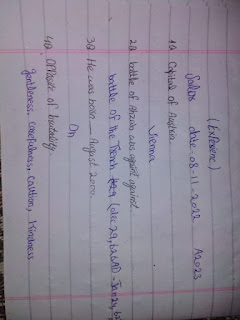 (Extevene)
Sailors date-08-11-2022 A2023
1Q Capital of Austria
Vienna
2Q battle of Ahzaba was against against
battle of the Trench #29 (dec 29, 626AD - Jan 24, 62
3Q He was born __ August 2000.
On
4Q. Opposite of brutality
gentleness, carefulness, caution, kindness